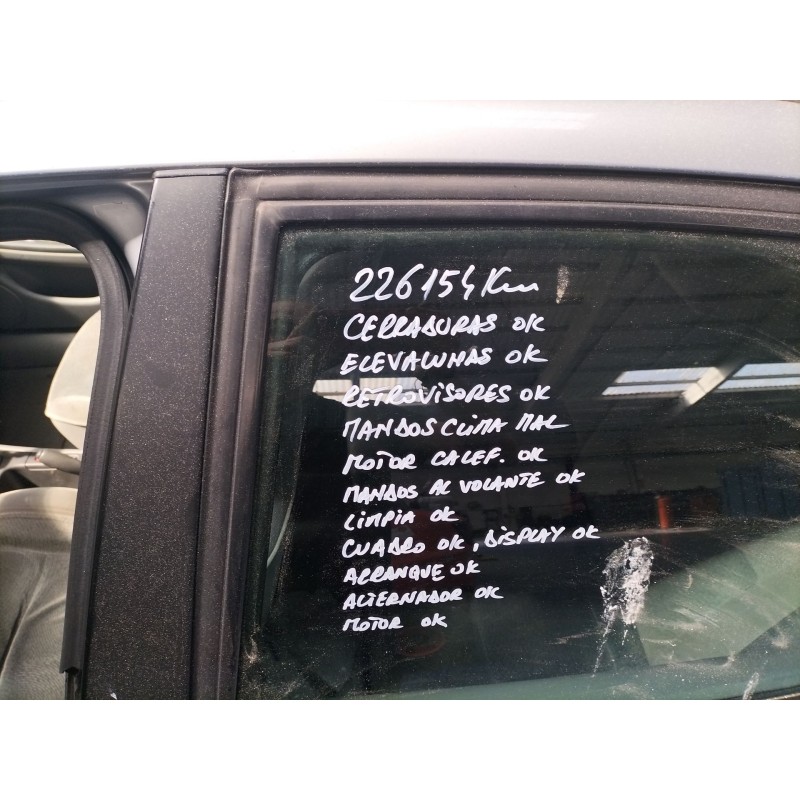 226154 Km
CERRADURAS OK
ELEVALUNAS OK
RETROVISORES OK
MANDOS CLIMA MAL
MOTOR CALEF. OK
MANDOS AL VOLANTE OK
LIMPIA OK
CUADRO OK, DISPLAY OK
ARRANQUE OK
ALTERNADOR OK
MOTOR OK